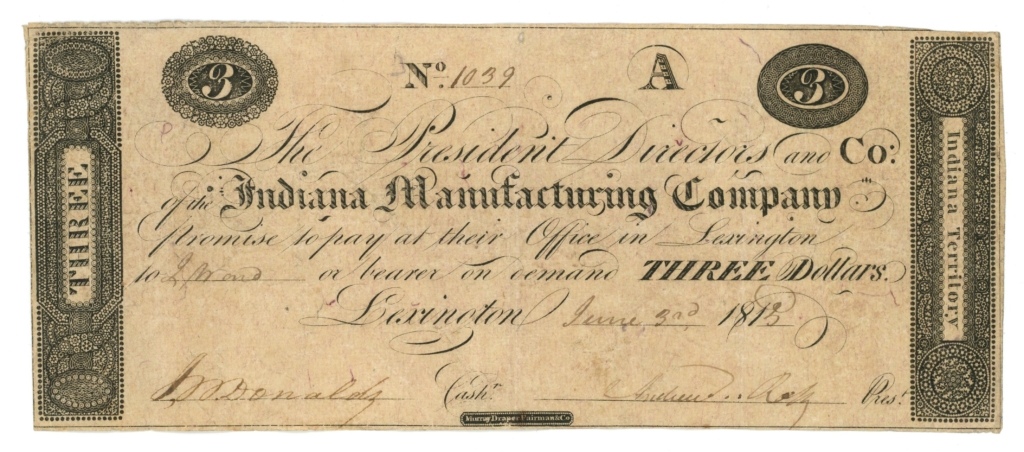 3 No. 1039 A 3
The President Directors and Co:
of the Indiana Manufacturing Company
Promise to pay at their Office in Lexington
to or bearer on demand THREE Dollars.
Lexington June 3rd 1813
Donald Cash.r Pres.t
Murray Draper Fairman & Co
THREE
Indiana Territory